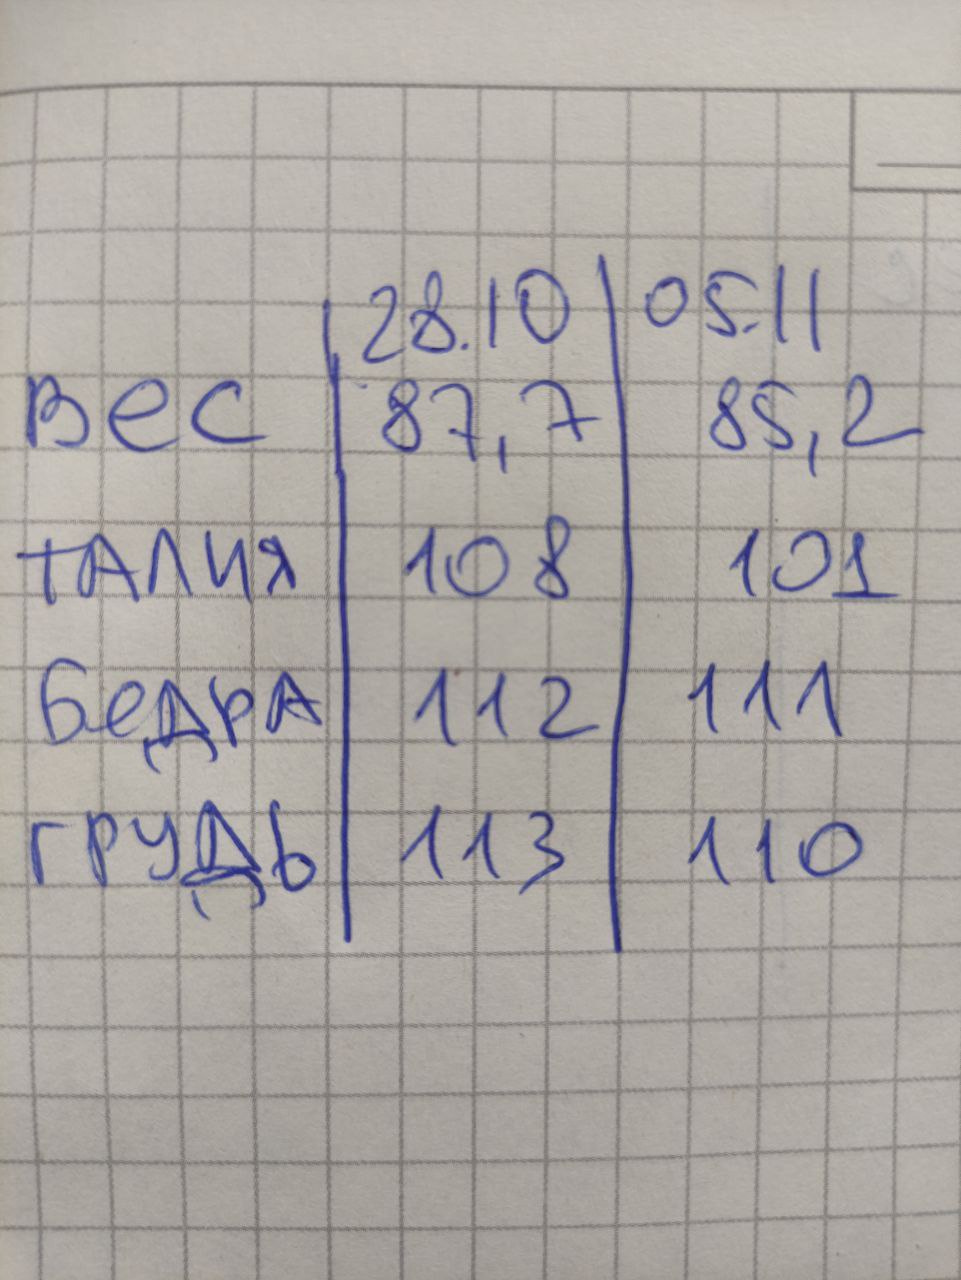 28.10 05.11
Вес 87,7 85,2
ТАЛИЯ 108 101
Бедра 112 111
грудь 113 110